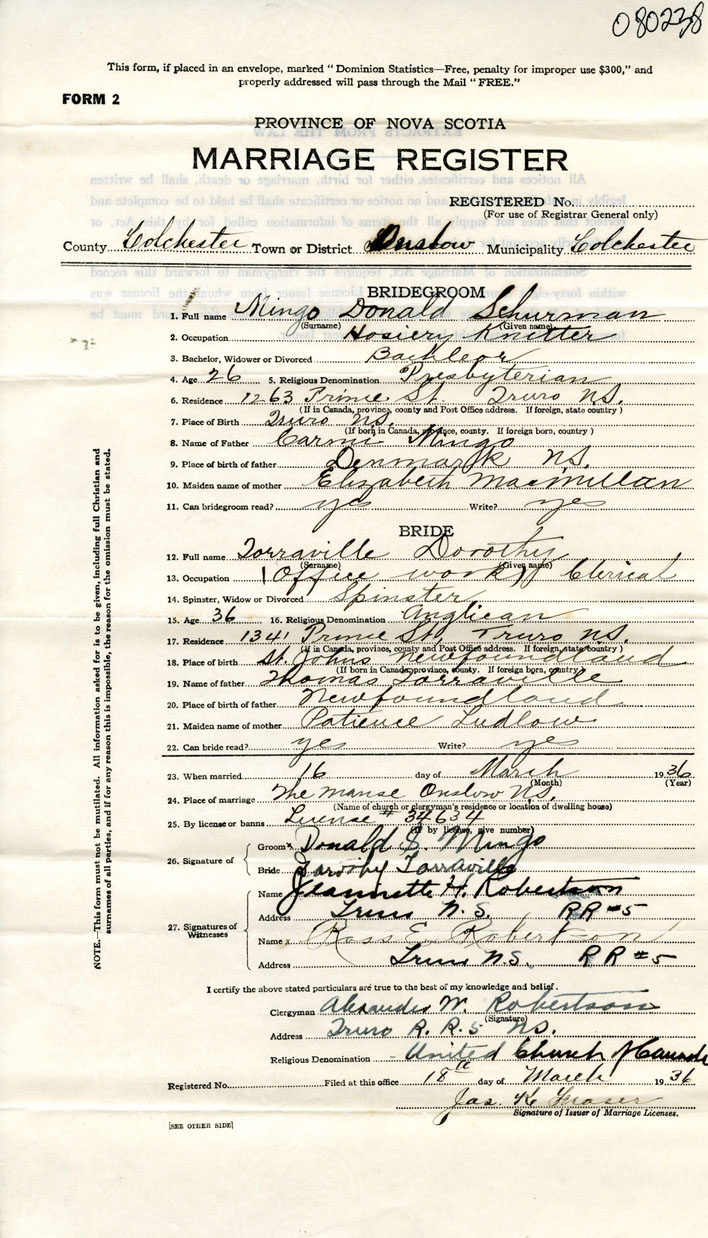 080238
This form, if placed in an envelope, marked "Dominion Statistics—Free, penalty for improper use $300," and
properly addressed will pass through the Mail "FREE."
FORM 2
PROVINCE OF NOVA SCOTIA
MARRIAGE REGISTER
REGISTERED No.
(For use of Registrar General only)
County Colchester Town or District Onslow Municipality Colchester
BRIDEGROOM
1. Full name Mingo Donald Schurman
(Surname) (Given name)
2. Occupation Hosiery Knitter
3. Bachelor, Widower or Divorced Bachleor
4. Age 26 5. Religious Denomination Presbyterian
6. Residence 1263 Prince St. Truro N.S.
(If in Canada, province, county and Post Office address. If foreign, state country)
7. Place of Birth Truro N.S.
(If born in Canada, province, county. If foreign born, country.)
8. Name of Father Carmi Mingo
9. Place of birth of father Denmark N.S.
10. Maiden name of mother Elizabeth Macmillan
11. Can bridegroom read? yes Write? yes
BRIDE
12. Full name Torraville Dorothy
(Surname) (Given name)
13. Occupation Office work Clerical
14. Spinster, Widow or Divorced Spinster
15. Age 36 16. Religious Denomination Anglican
17. Residence 1341 Prince St. Truro N.S.
(If in Canada, province, county and Post Office address. If foreign, state country)
18. Place of birth St. Johns Newfoundland
(If born in Canada, province, county. If foreign born, country.)
19. Name of father Thomas Torraville
20. Place of birth of father Newfoundland
21. Maiden name of mother Patience Ludlow
22. Can bride read? yes Write? yes
23. When married 16 day of March 1936
(Month) (Year)
24. Place of marriage The Manse Onslow N.S.
(Name of church or clergyman's residence or location of dwelling house)
25. By license or banns License # 34634
(If by license, give number)
26. Signature of
Groom x Donald S. Mingo
Bride Dorothy Torraville
27. Signatures of Witnesses
Name Jeannette H. Robertson
Address Truro N.S. RR #5
Name x Ross E. Robertson
Address Truro N.S. RR #5
I certify the above stated particulars are true to the best of my knowledge and belief.
Clergyman Alexander W. Robertson
(Signature)
Address Truro R. R. 5 N.S.
Religious Denomination United Church of Canada
Registered No. Filed at this office 18th day of March 1936
Jas. K. Fraser
Signature of Issuer of Marriage Licenses.
[SEE OTHER SIDE]
NOTE.—This form must not be mutilated. All information asked for is to be given, including full Christian and
surnames of all parties, and if for any reason this is impossible, the reason for the omission must be stated.